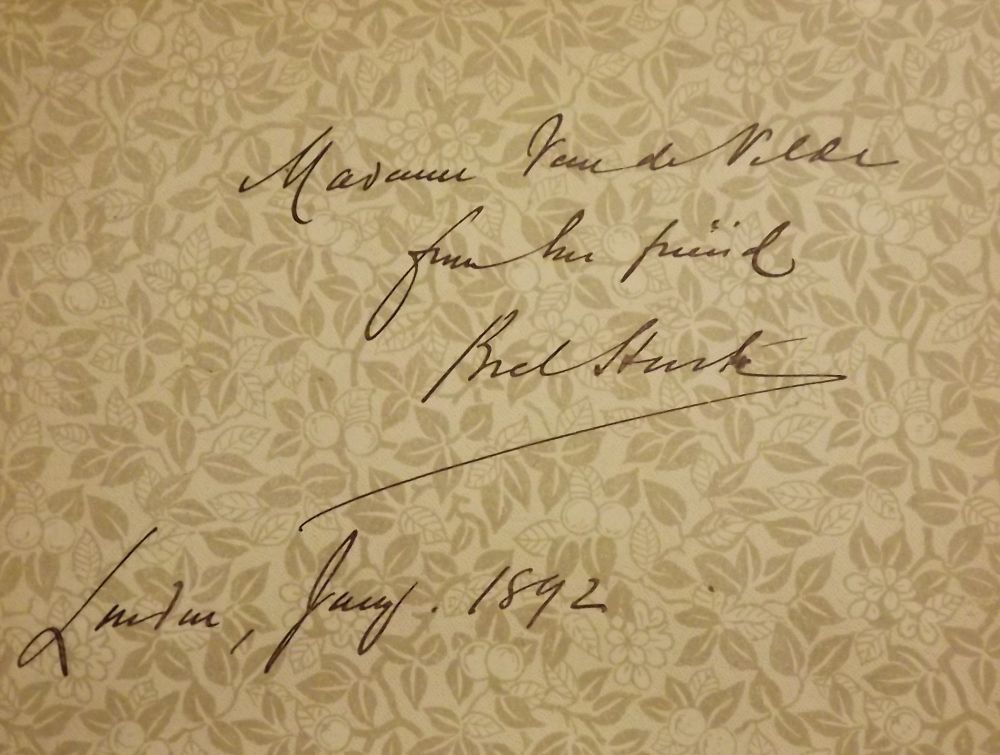 Madame Van de Velde
from her friend
Bret Harte
London, Jany. 1892